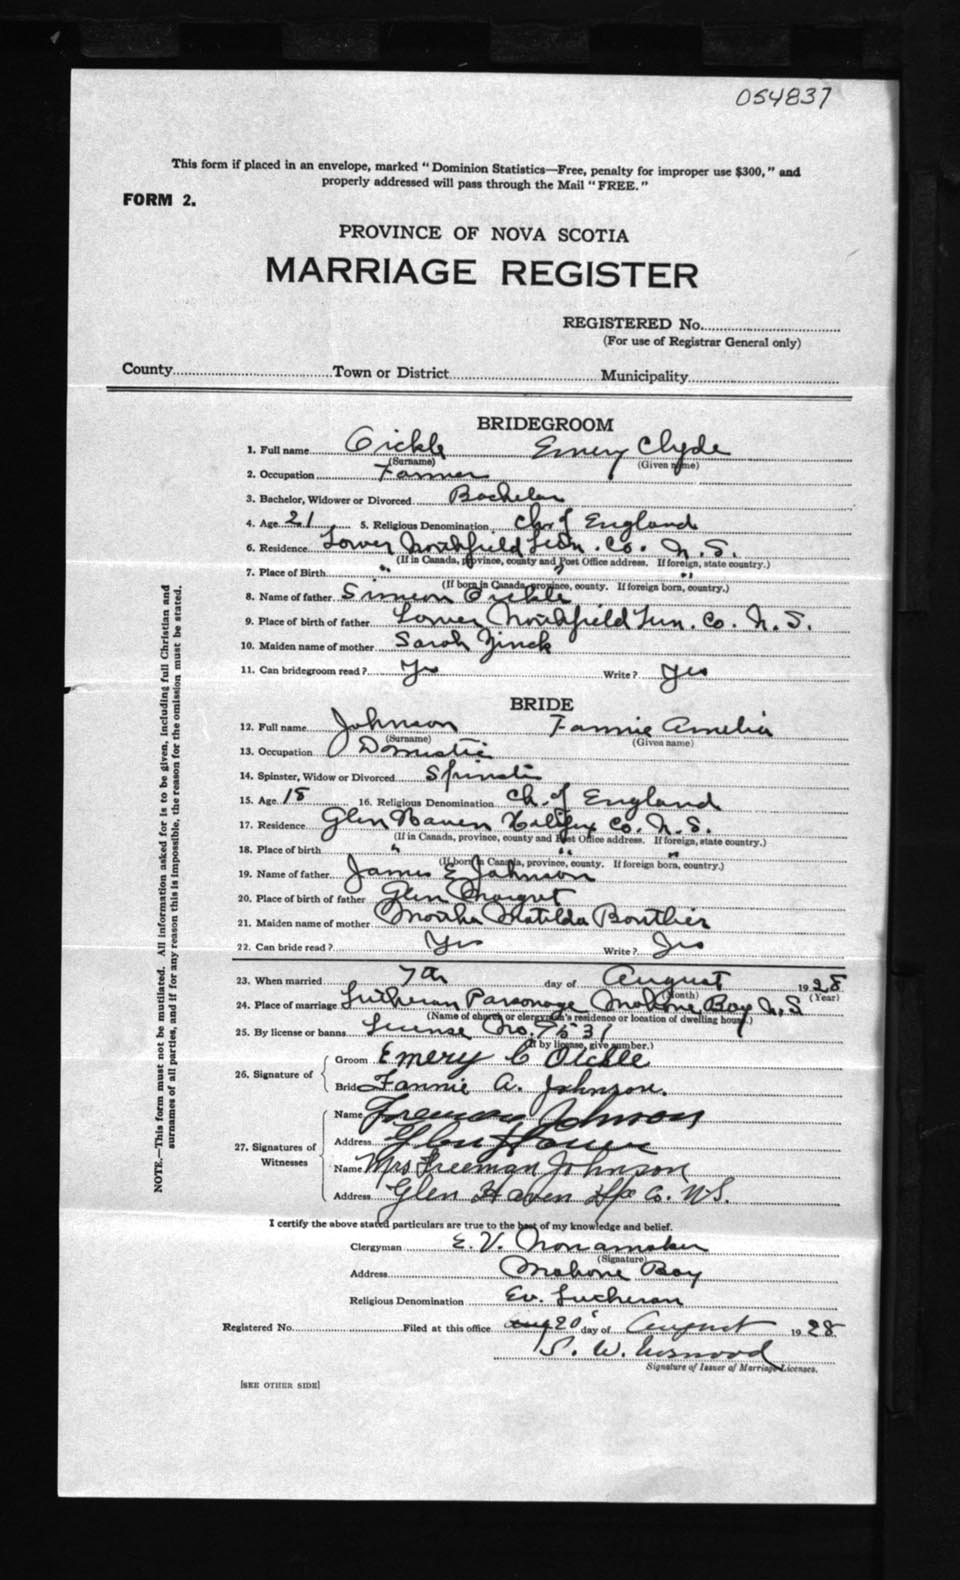 054837
This form if placed in an envelope, marked "Dominion Statistics—Free, penalty for improper use $300," and
properly addressed will pass through the Mail "FREE."
FORM 2.
PROVINCE OF NOVA SCOTIA
MARRIAGE REGISTER
REGISTERED No.
(For use of Registrar General only)
County Town or District Municipality
BRIDEGROOM
1. Full name Oickle Emery Clyde
(Surname) (Given name)
2. Occupation Farmer
3. Bachelor, Widower or Divorced Bachelor
4. Age 21 5. Religious Denomination Ch. of England
6. Residence Lower Northfield Lun. Co. N.S.
(If in Canada, province, county and Post Office address. If foreign, state country.)
7. Place of Birth " " "
(If born in Canada, province, county. If foreign born, country.)
8. Name of father Simeon Oickle
9. Place of birth of father Lower Northfield Lun. Co. N.S.
10. Maiden name of mother Sarah Zinck
11. Can bridegroom read? Yes Write? Yes
BRIDE
12. Full name Johnson Fannie Amelia
(Surname) (Given name)
13. Occupation Domestic
14. Spinster, Widow or Divorced Spinster
15. Age 18 16. Religious Denomination Ch. of England
17. Residence Glen Haven Halifax Co. N.S.
(If in Canada, province, county and Post Office address. If foreign, state country.)
18. Place of birth " " "
(If born in Canada, province, county. If foreign born, country.)
19. Name of father James E Johnson
20. Place of birth of father Glen Margret
21. Maiden name of mother Martha Matilda Boutlier
22. Can bride read? Yes Write? Yes
23. When married 7th day of August 1928
(Month) (Year)
24. Place of marriage Lutheran Parsonage Mahone Bay N.S
(Name of church or clergyman's residence or location of dwelling house.)
25. By license or banns License No. 9531
(If by license, give number.)
26. Signature of Groom Emery C Oickle
Bride Fannie A. Johnson.
27. Signatures of Witnesses Name Freeman Johnson
Address Glen Haven
Name Mrs Freeman Johnson
Address Glen Haven Hfx Co. N.S.
I certify the above stated particulars are true to the best of my knowledge and belief.
Clergyman E. V. Nonamaker
(Signature)
Address Mahone Bay
Religious Denomination Ev. Lutheran
Registered No. Filed at this office 20 day of August 1928
S. W.
Signature of Issuer of Marriage Licenses.
[SEE OTHER SIDE]
NOTE.—This form must not be mutilated. All information asked for is to be given, including full Christian and
surnames of all parties, and if for any reason this is impossible, the reason for the omission must be stated.